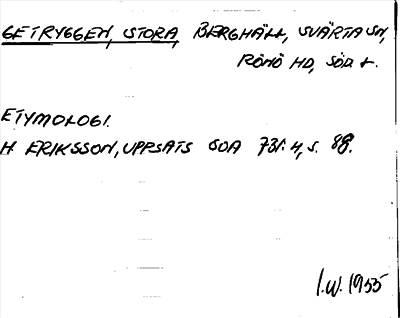 GETRYGGEN, STORA, BERGHÄLL, SVÄRTA SN,
RÖNÖ HD, SÖD L.
ETYMOLOGI.
H ERIKSSON, UPPSATS SOA 731:4, S. 88.
I.W. 1955